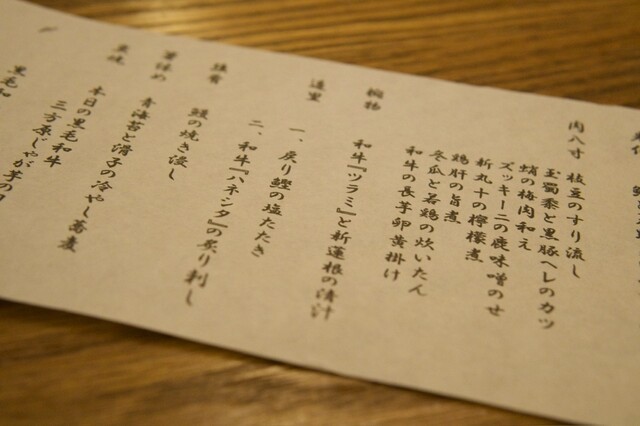 肉八寸 枝豆のすり流し
玉蜀黍と黒豚ヘレのカツ
蛸の梅肉和え
ズッキーニの夜味噌のせ
新丸十の檸檬煮
鶏肝の旨煮
冬瓜と若鶏の炊いたん
和牛の長芋卵黄掛け
椀物 和牛『ツラミ』と新蓮根の清汁
造里 一、炙り鰹の塩たたき
二、和牛『ハネシタ』の炙り刺し
鰻の焼き浸し
箸休め 青海苔と滑子の冷やし蕎麦
本日の黒毛和牛
三方原じゃが芋の
黒毛和